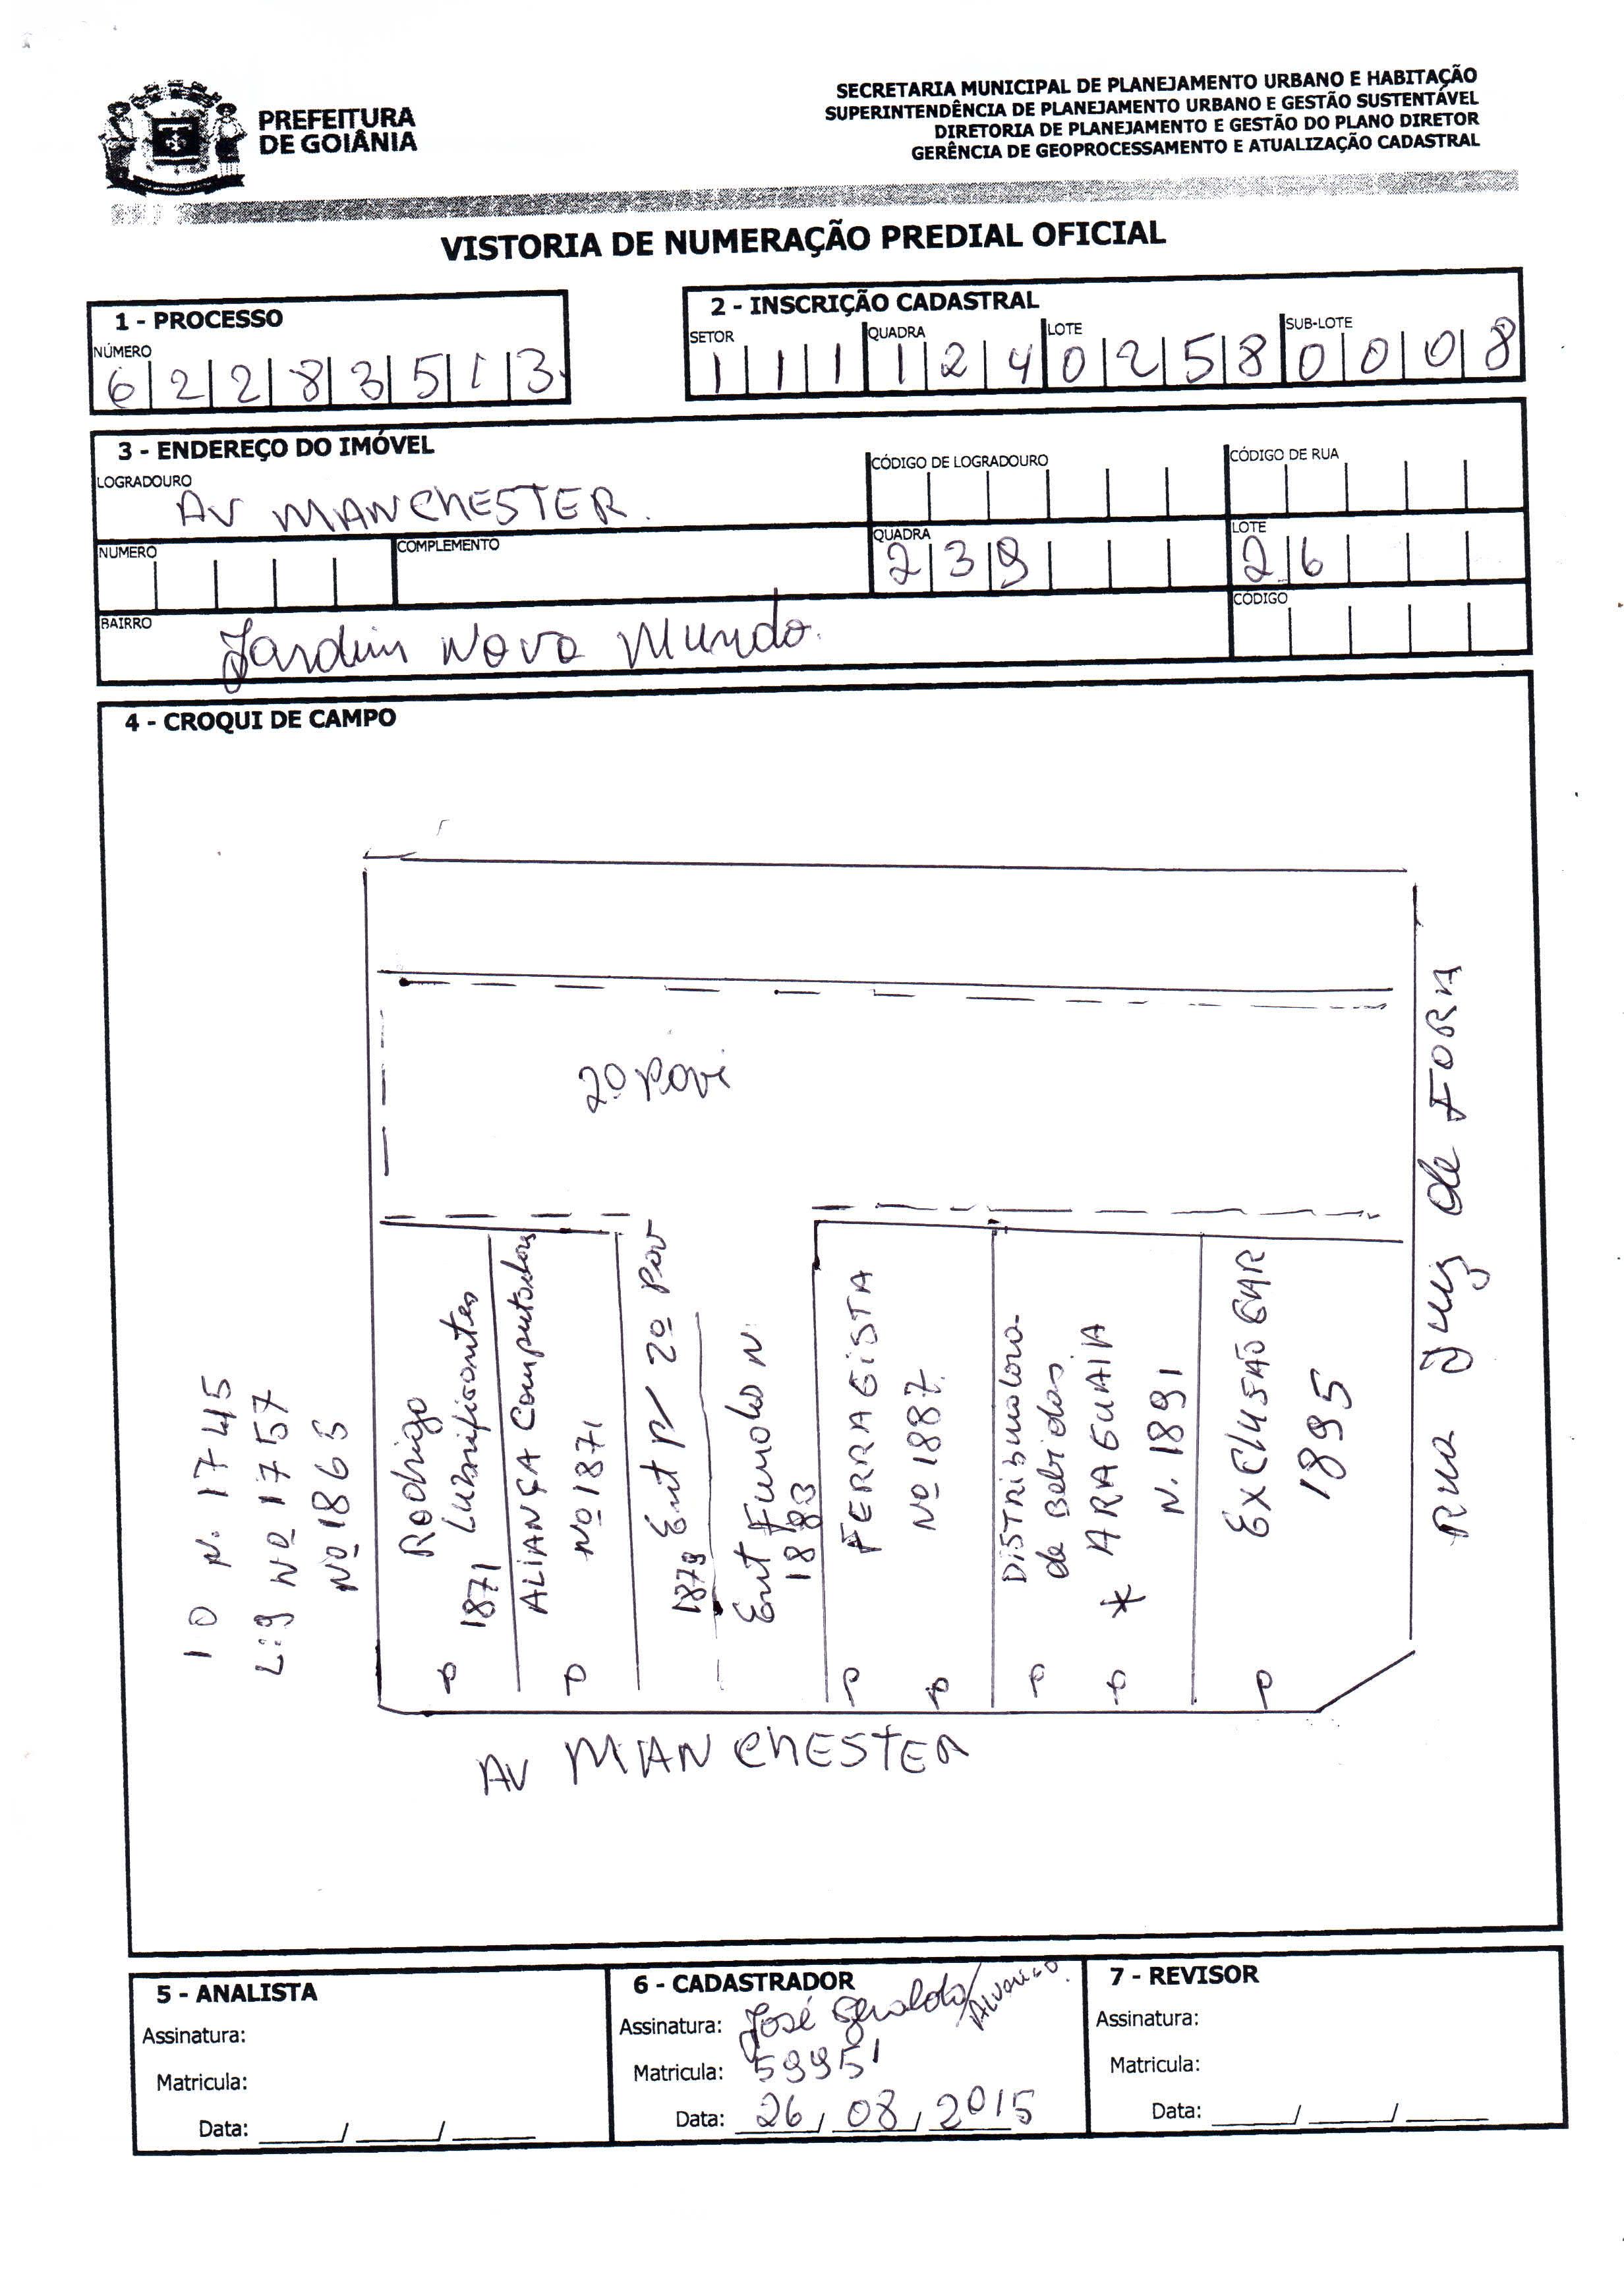 PREFEITURA
DE GOIÂNIA
SECRETARIA MUNICIPAL DE PLANEJAMENTO URBANO E HABITAÇÃO
SUPERINTENDÊNCIA DE PLANEJAMENTO URBANO E GESTÃO SUSTENTÁVEL
DIRETORIA DE PLANEJAMENTO E GESTÃO DO PLANO DIRETOR
GERÊNCIA DE GEOPROCESSAMENTO E ATUALIZAÇÃO CADASTRAL
VISTORIA DE NUMERAÇÃO PREDIAL OFICIAL
1 - PROCESSO
NÚMERO
6 2 2 8 3 5 1 3
2 - INSCRIÇÃO CADASTRAL
SETOR QUADRA LOTE SUB-LOTE
1 1 1 1 2 4 0 2 5 8 0 0 0 8
3 - ENDEREÇO DO IMÓVEL
LOGRADOURO
AV MANCHESTER.
CÓDIGO DE LOGRADOURO
CÓDIGO DE RUA
NUMERO
COMPLEMENTO
QUADRA
2 3 9
LOTE
2 6
BAIRRO
Jardim Novo Mundo.
CÓDIGO
4 - CROQUI DE CAMPO
2º Pavi
10 N. 1745
L:9 Nº 1757
Nº 1865
Rodrigo
Lubrificantes
1871
ALIANÇA Computadores
Nº 1871
Ent P/ 2º Pav
1879
Ent Fundo N
1883
FERRAGISTA
Nº 1887.
DISTRIBUIDORA
de Bebidas
* ARAGUAIA
N. 1891
EXCLUSÃO CAR
1895
Rua Juiz de FORA
AV MANCHESTER
5 - ANALISTA
Assinatura:
Matricula:
Data: / /
6 - CADASTRADOR
Assinatura: José Geraldo Alvarico.
Matricula: 59951
Data: 26 / 08 / 2015
7 - REVISOR
Assinatura:
Matricula:
Data: / /